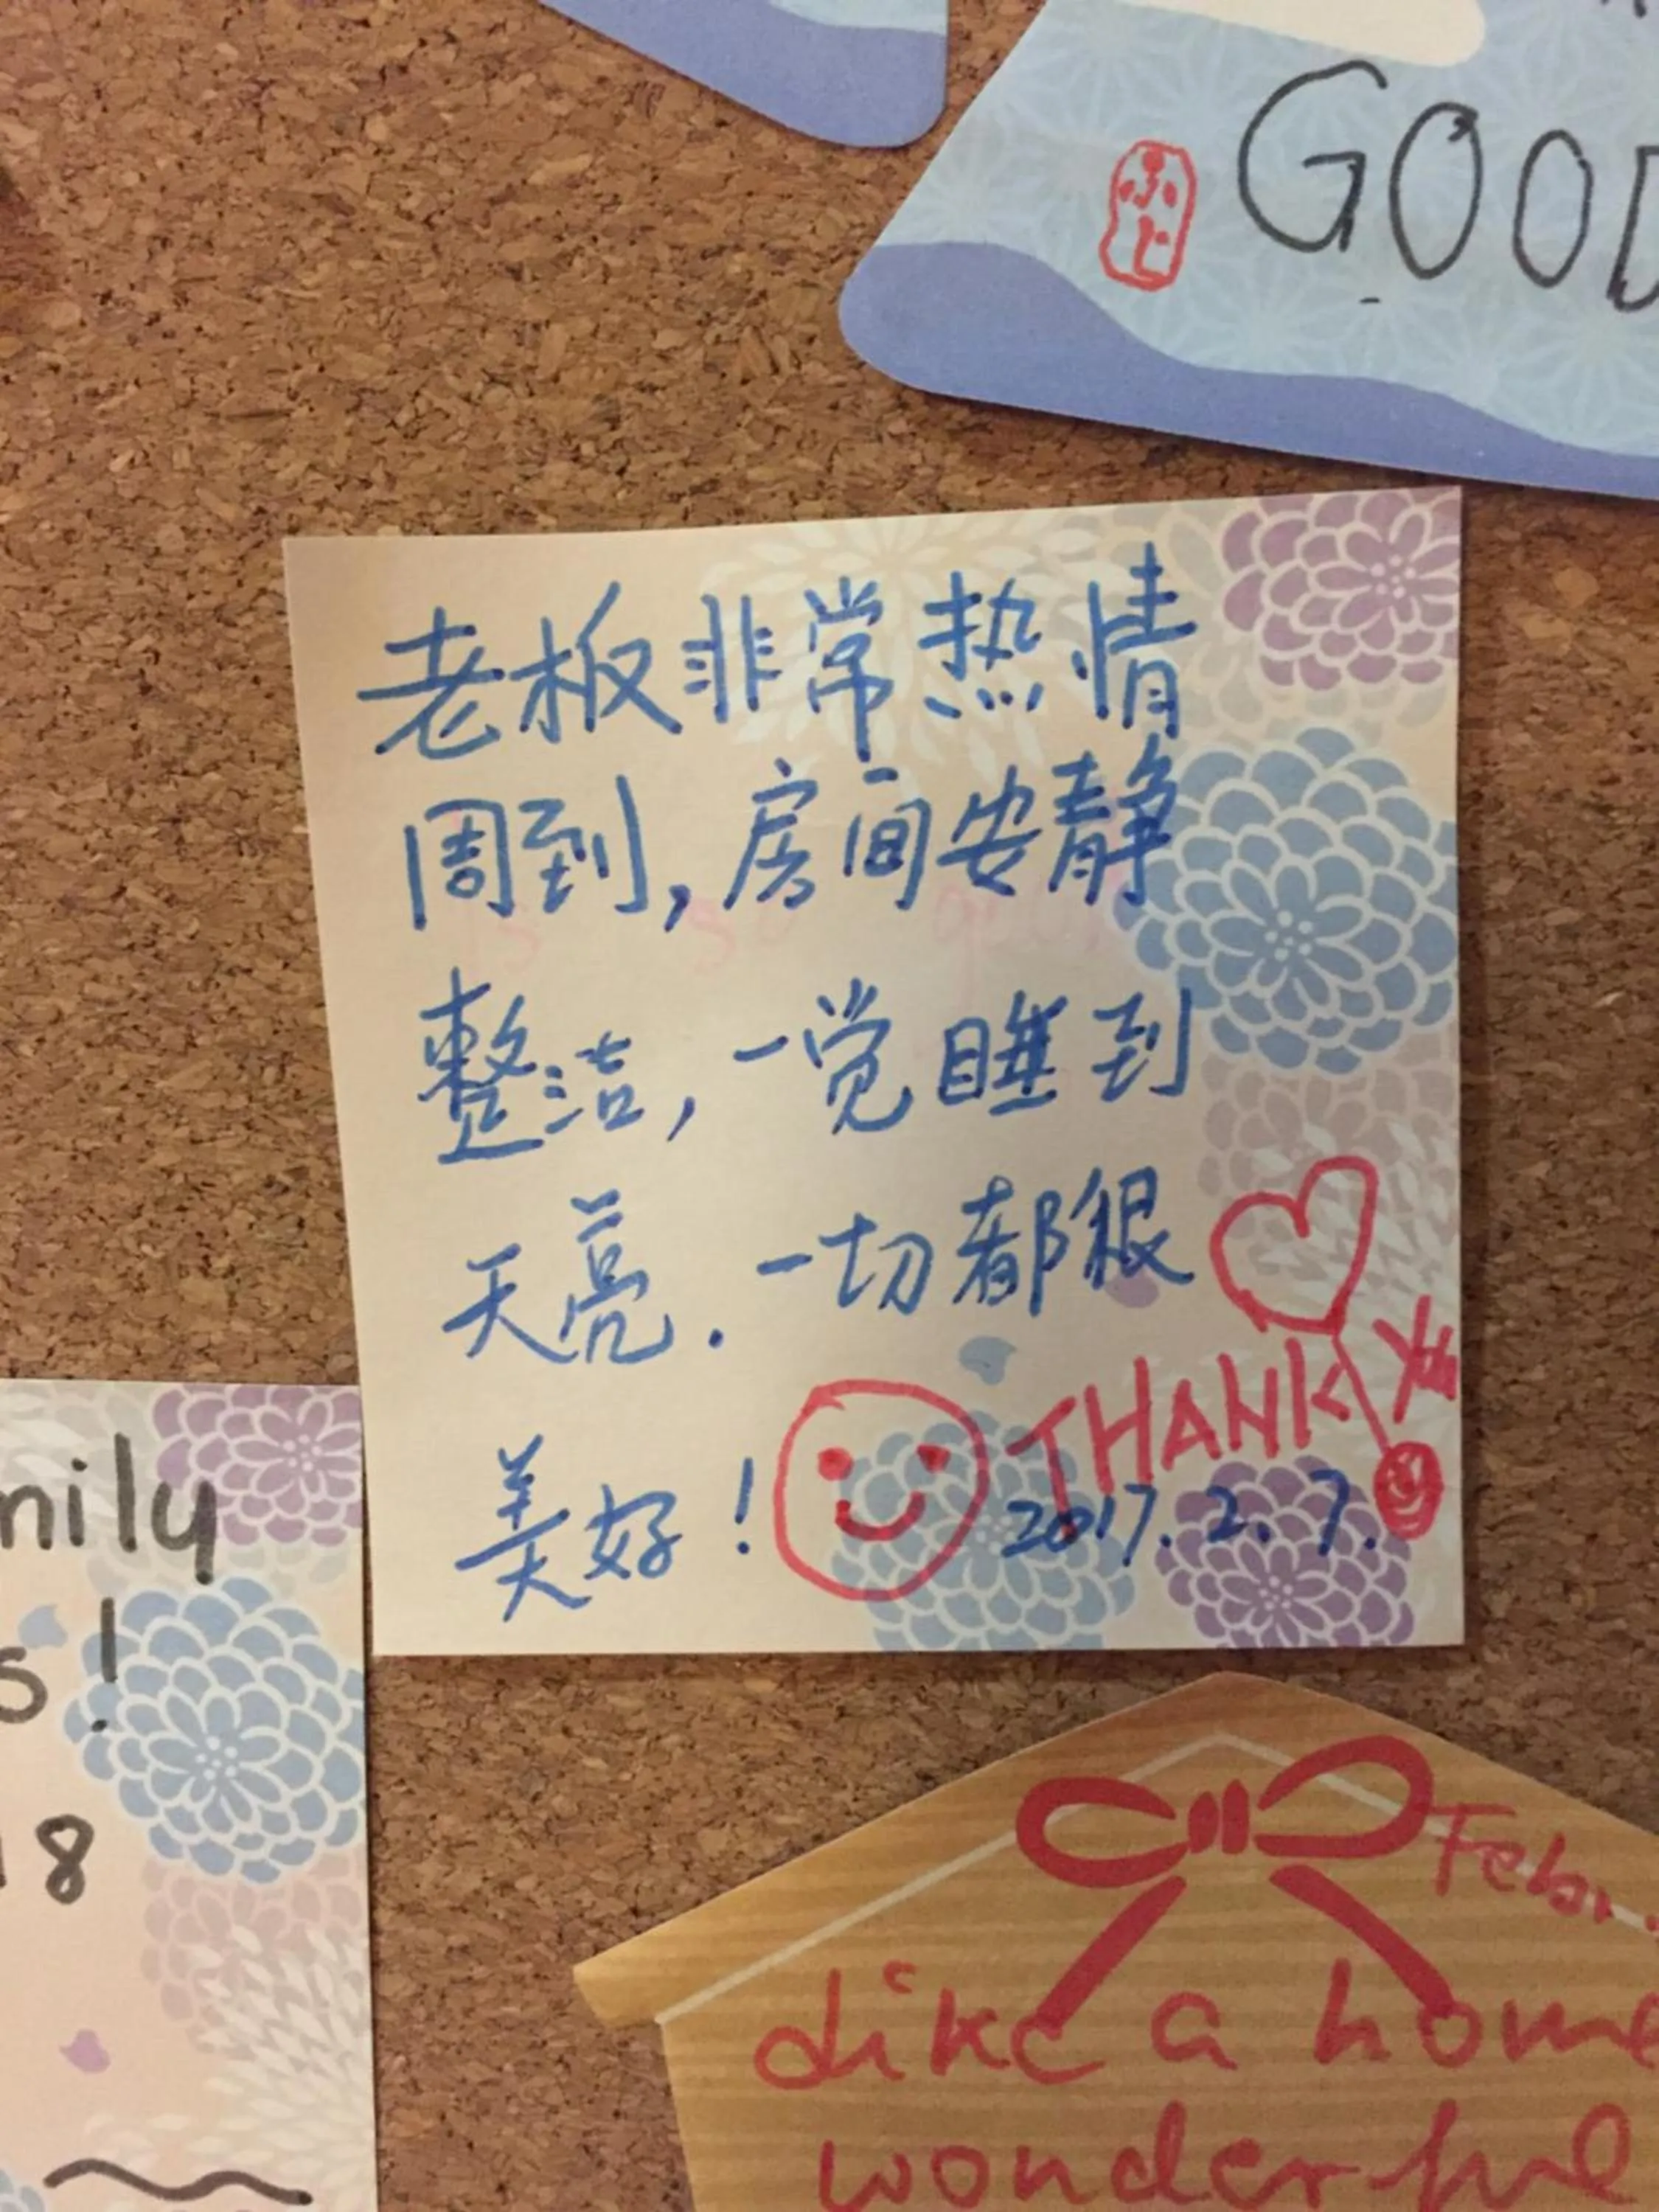 GOOD
ふじ
老板非常热情
周到,房间安静
整洁,一觉睡到
天亮.一切都很
美好!
THANK You
2017.2.7.
mily
s!
18
Feb
like a home
wonderful